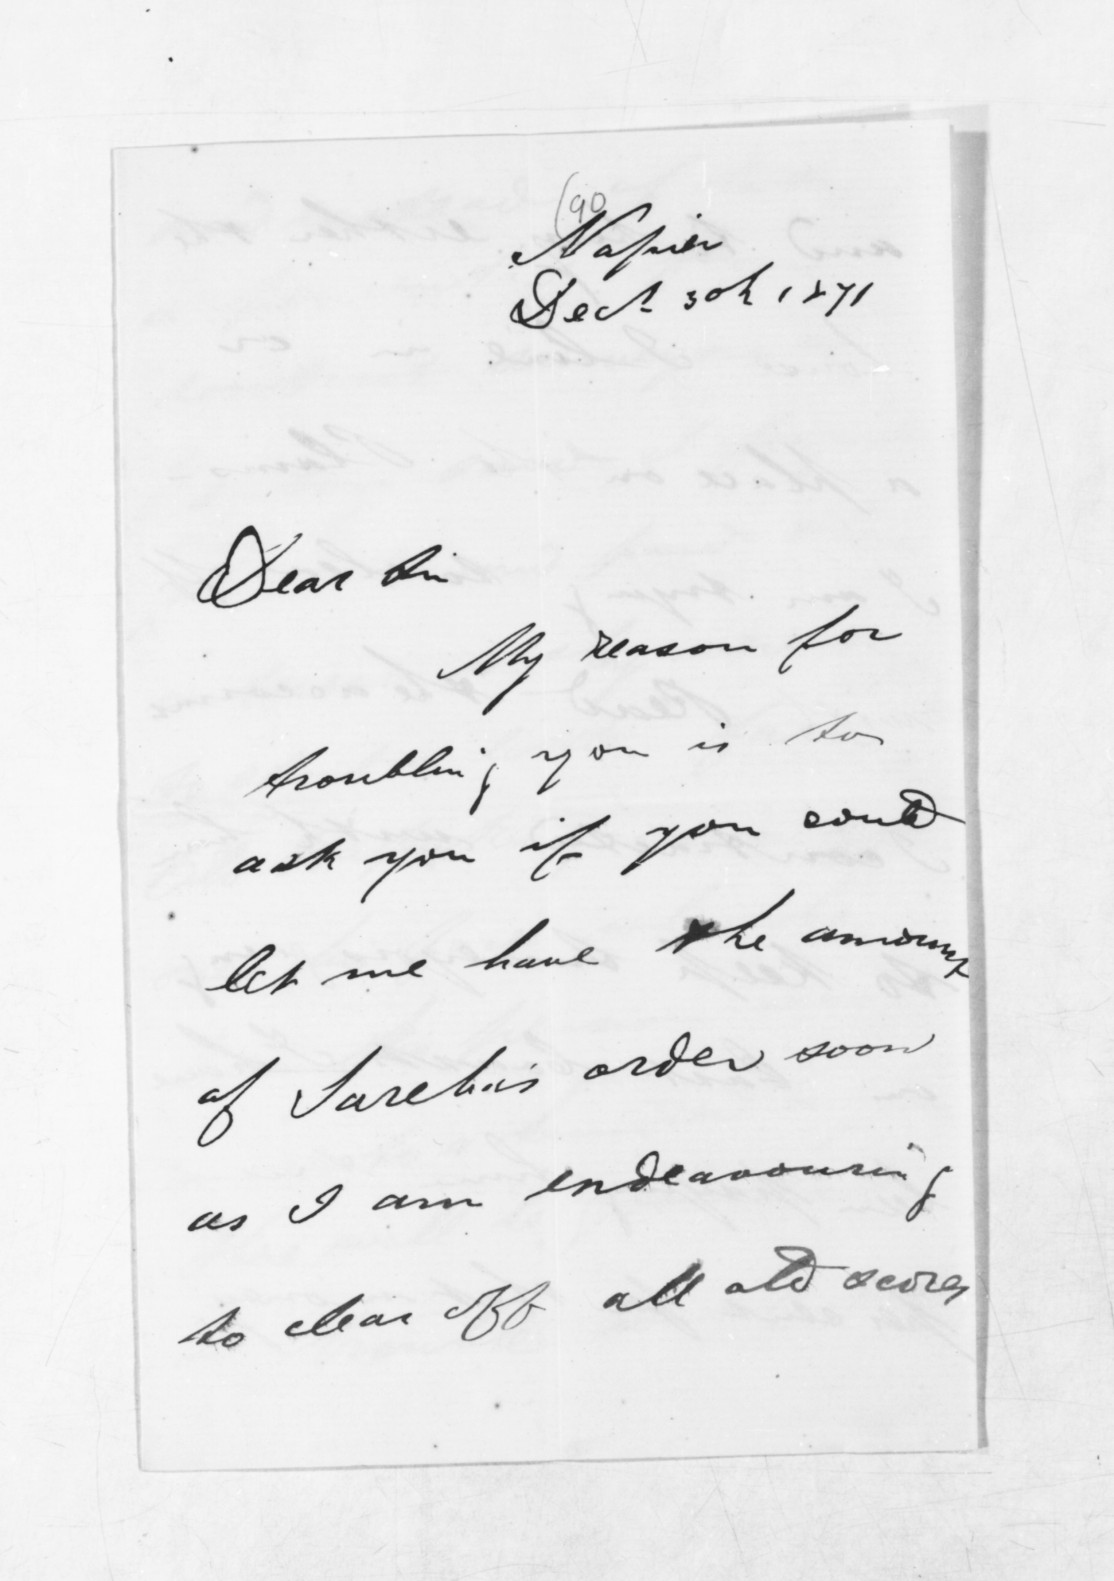 (90
Napier
Dect 30th 1871
Dear Sir
My reason for
troubling you is to
ask you if you could
let me have the amount
of Tareha's order soon
as I am endeavouring
to clear off all old scores